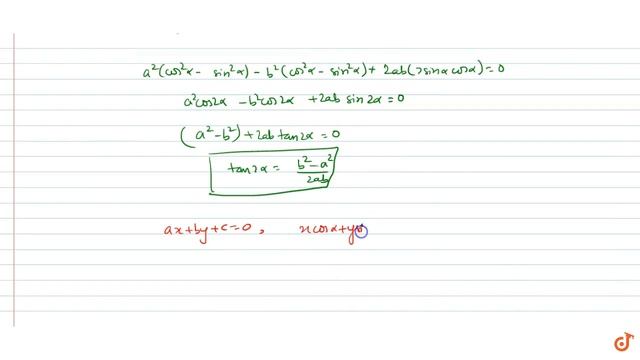 a²(cos²α - sin²α) - b²(cos²α - sin²α) + 2ab(2sinα cosα) = 0
a²cos2α - b²cos2α + 2ab sin2α = 0
(a² - b²) + 2ab tan2α = 0
tan2α = (b² - a²)/2ab
ax + by + c = 0, x cosα + y